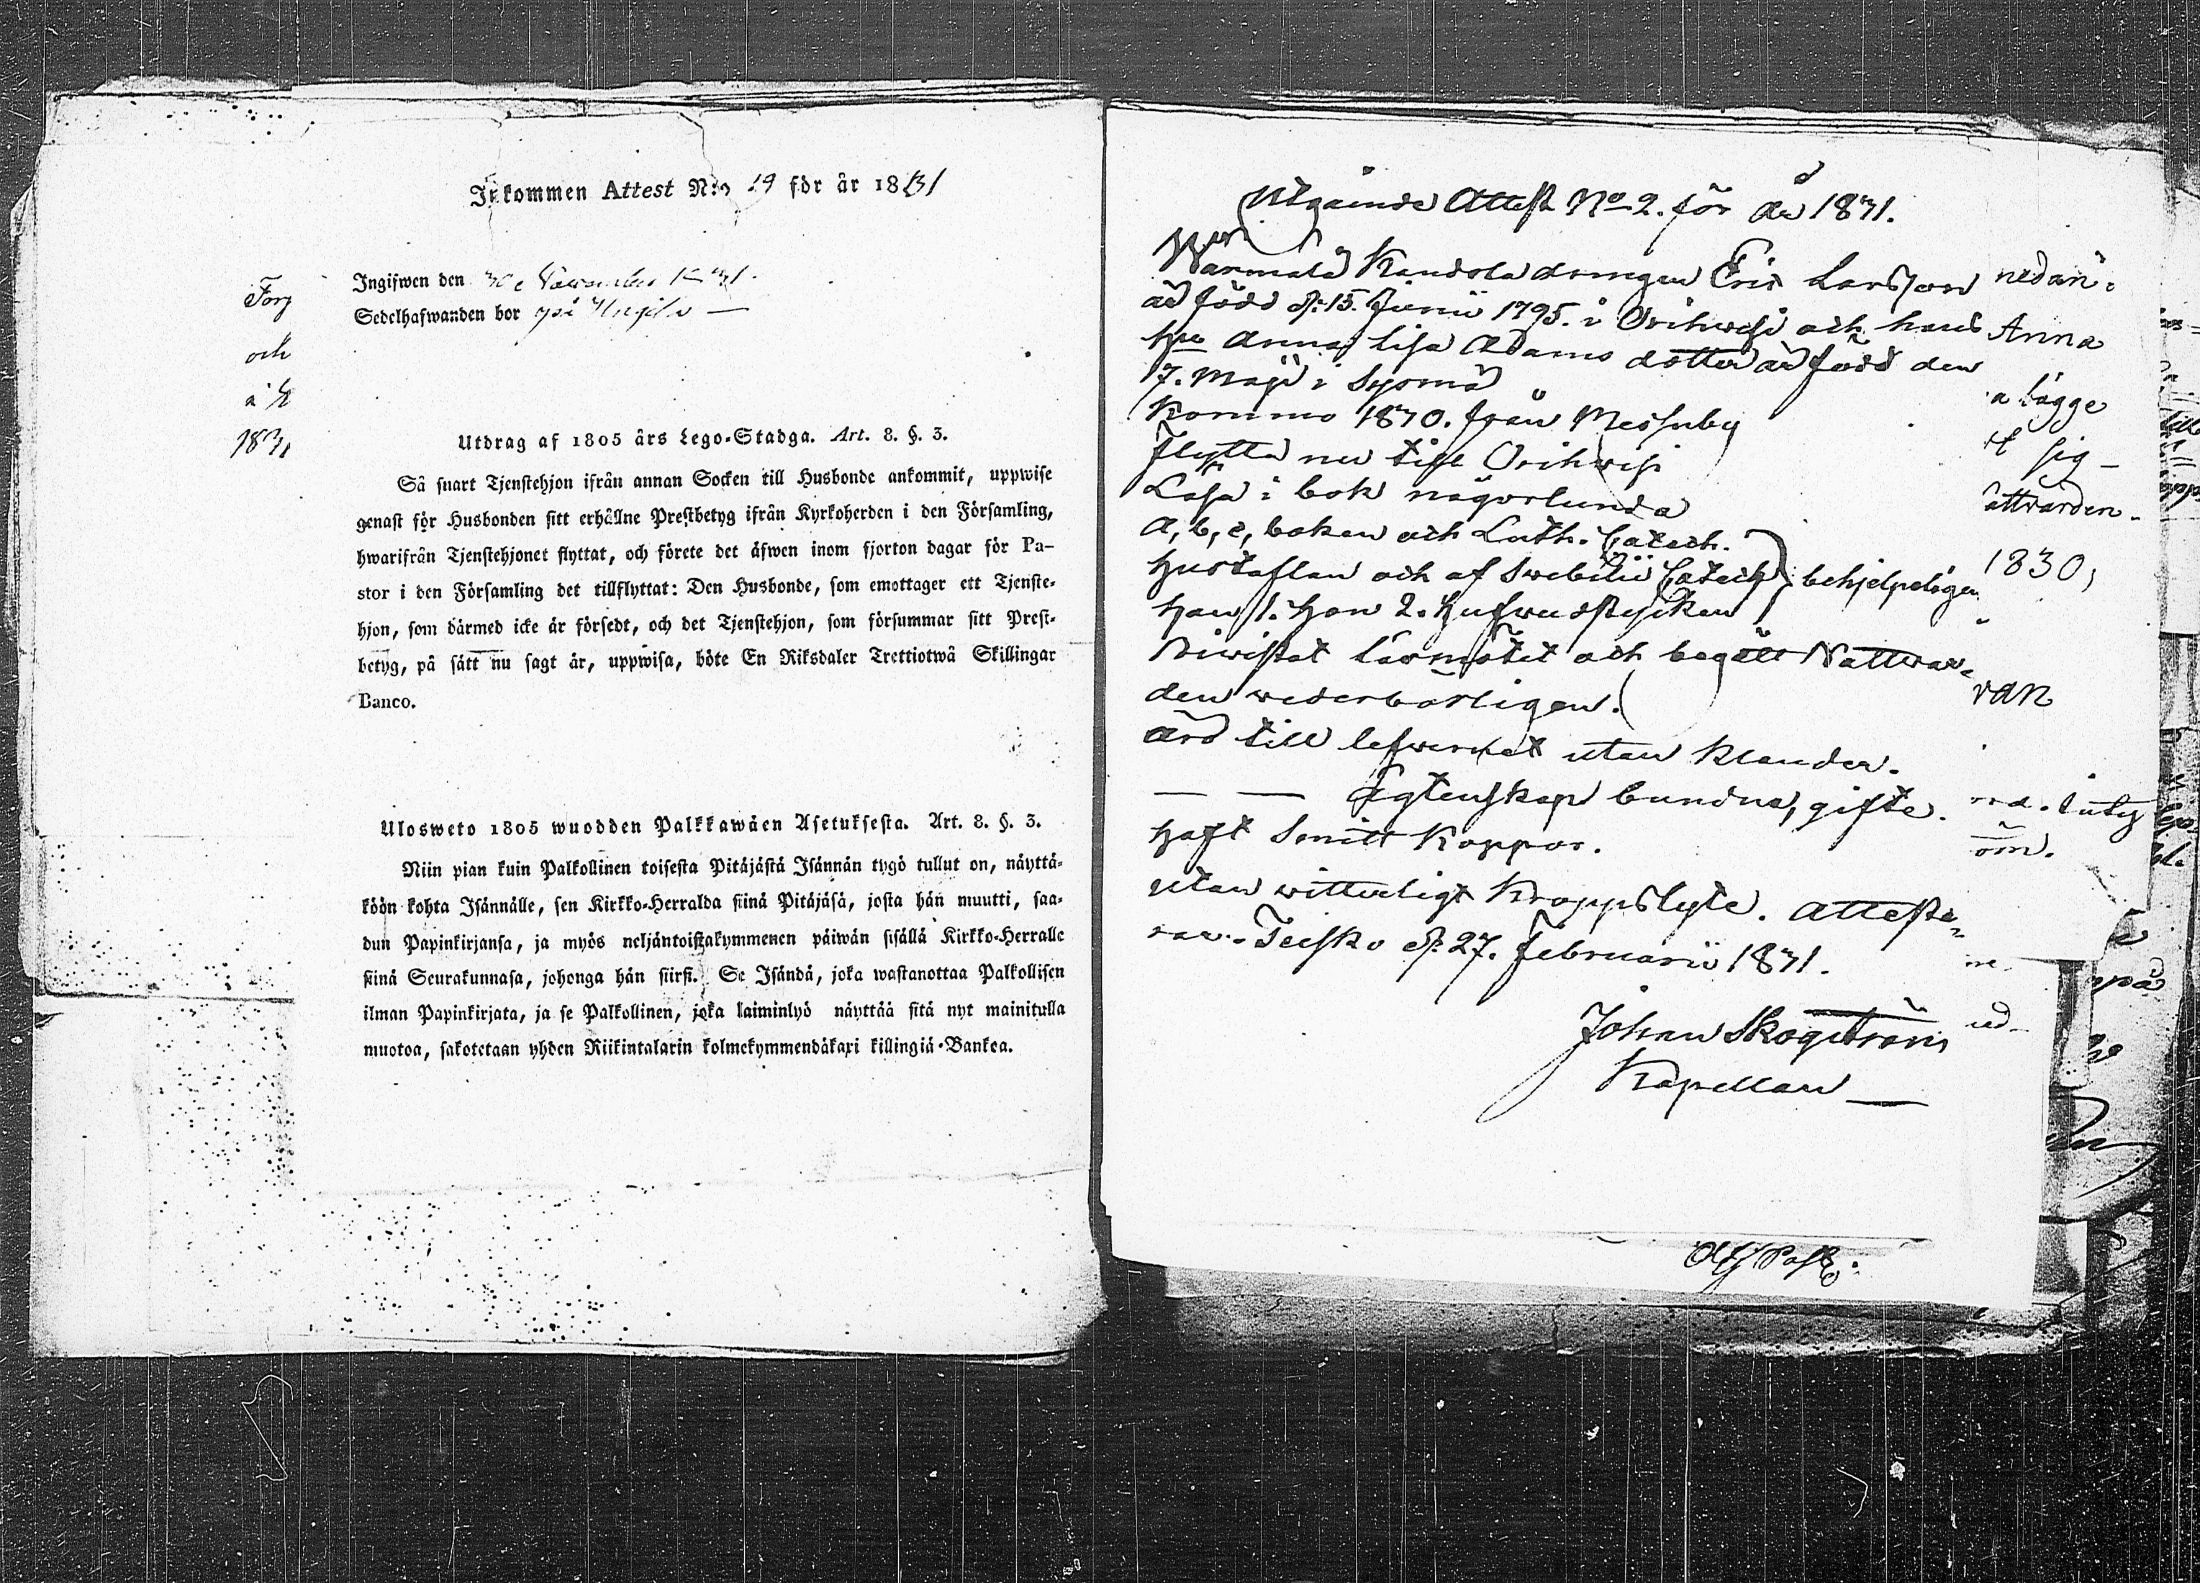 Inkommen Attest N:o 29 för år 1831
Ingifwen den November 1831.
Sedelhafwanden bor på
Torg
och
1831
Utdrag af 1805 års Lego-Stadga. Art. 8. §. 3.
Så snart Tjenstehjon ifrån annan Socken till Husbonde ankommit, uppwise
genast för Husbonden sitt erhållne Prestbetyg ifrån Kyrkoherden i den Församling,
hwarifrån Tjenstehjonet flyttat, och förete det äfwen inom fjorton dagar för Pa-
stor i den Församling det tillflyttat: Den Husbonde, som emottager ett Tjenste-
hjon, som därmed icke är försedt, och det Tjenstehjon, som försummar sitt Prest-
betyg, på sätt nu sagt är, uppwisa, böte En Riksdaler Trettiotwå Skillingar
Banco.
Ulosweto 1805 wuodden Palkkawäen Asetuksesta. Art. 8. §. 3.
Niin pian kuin Palkollinen toisesta Pitäjästä Isännän tygö tullut on, näyttä-
köön kohta Isännälle, sen Kirkko-Herralda siinä Pitäjäsä, josta hän muutti, saa-
dun Papinkirjansa, ja myös neljäntoistakymmenen päiwän sisällä Kirkko-Herralle
siinä Seurakunnasa, johonga hän siirsi. Se Isändä, joka wastanottaa Palkollisen
ilman Papinkirjata, ja se Palkollinen, joka laiminlyö näyttää sitä nyt mainitulla
muotoa, sakotetaan yhden Riikintalarin kolmekymmendäkaxi killingiä Bankea.
Utgående Attest No 2. för år 1831.
Warmala Kandola drengen Eric Larsson
är född d: 15. Junii 1795. i Orihwesi och hans
hu Anna Lisa Adams dotter är född den
17. Maji i Sysmä
Komma 1830. från Messuby
Flytta nu till Orihwesi
Läsa i bok någorlunda
a, b, c, boken och Luth. Catech.
Hustaflan och af Swebilii Catech. behjelpeligen
han 1. hon 2. Hufwudstycken
Biwistat läsmötet och begått Nattwar-
den wederbörligen.
äro till lefwernet utan klander.
— — Ägtenskap bundna, gifte.
Haft Smitt Koppor.
utan witterligt Kroppslyte. Atteste-
rar. Teisko d: 27. Februarii 1831.
Johan Skogström
Kapellan
nedan
Anna
a bägge
sig
attvarden.
1830,
van